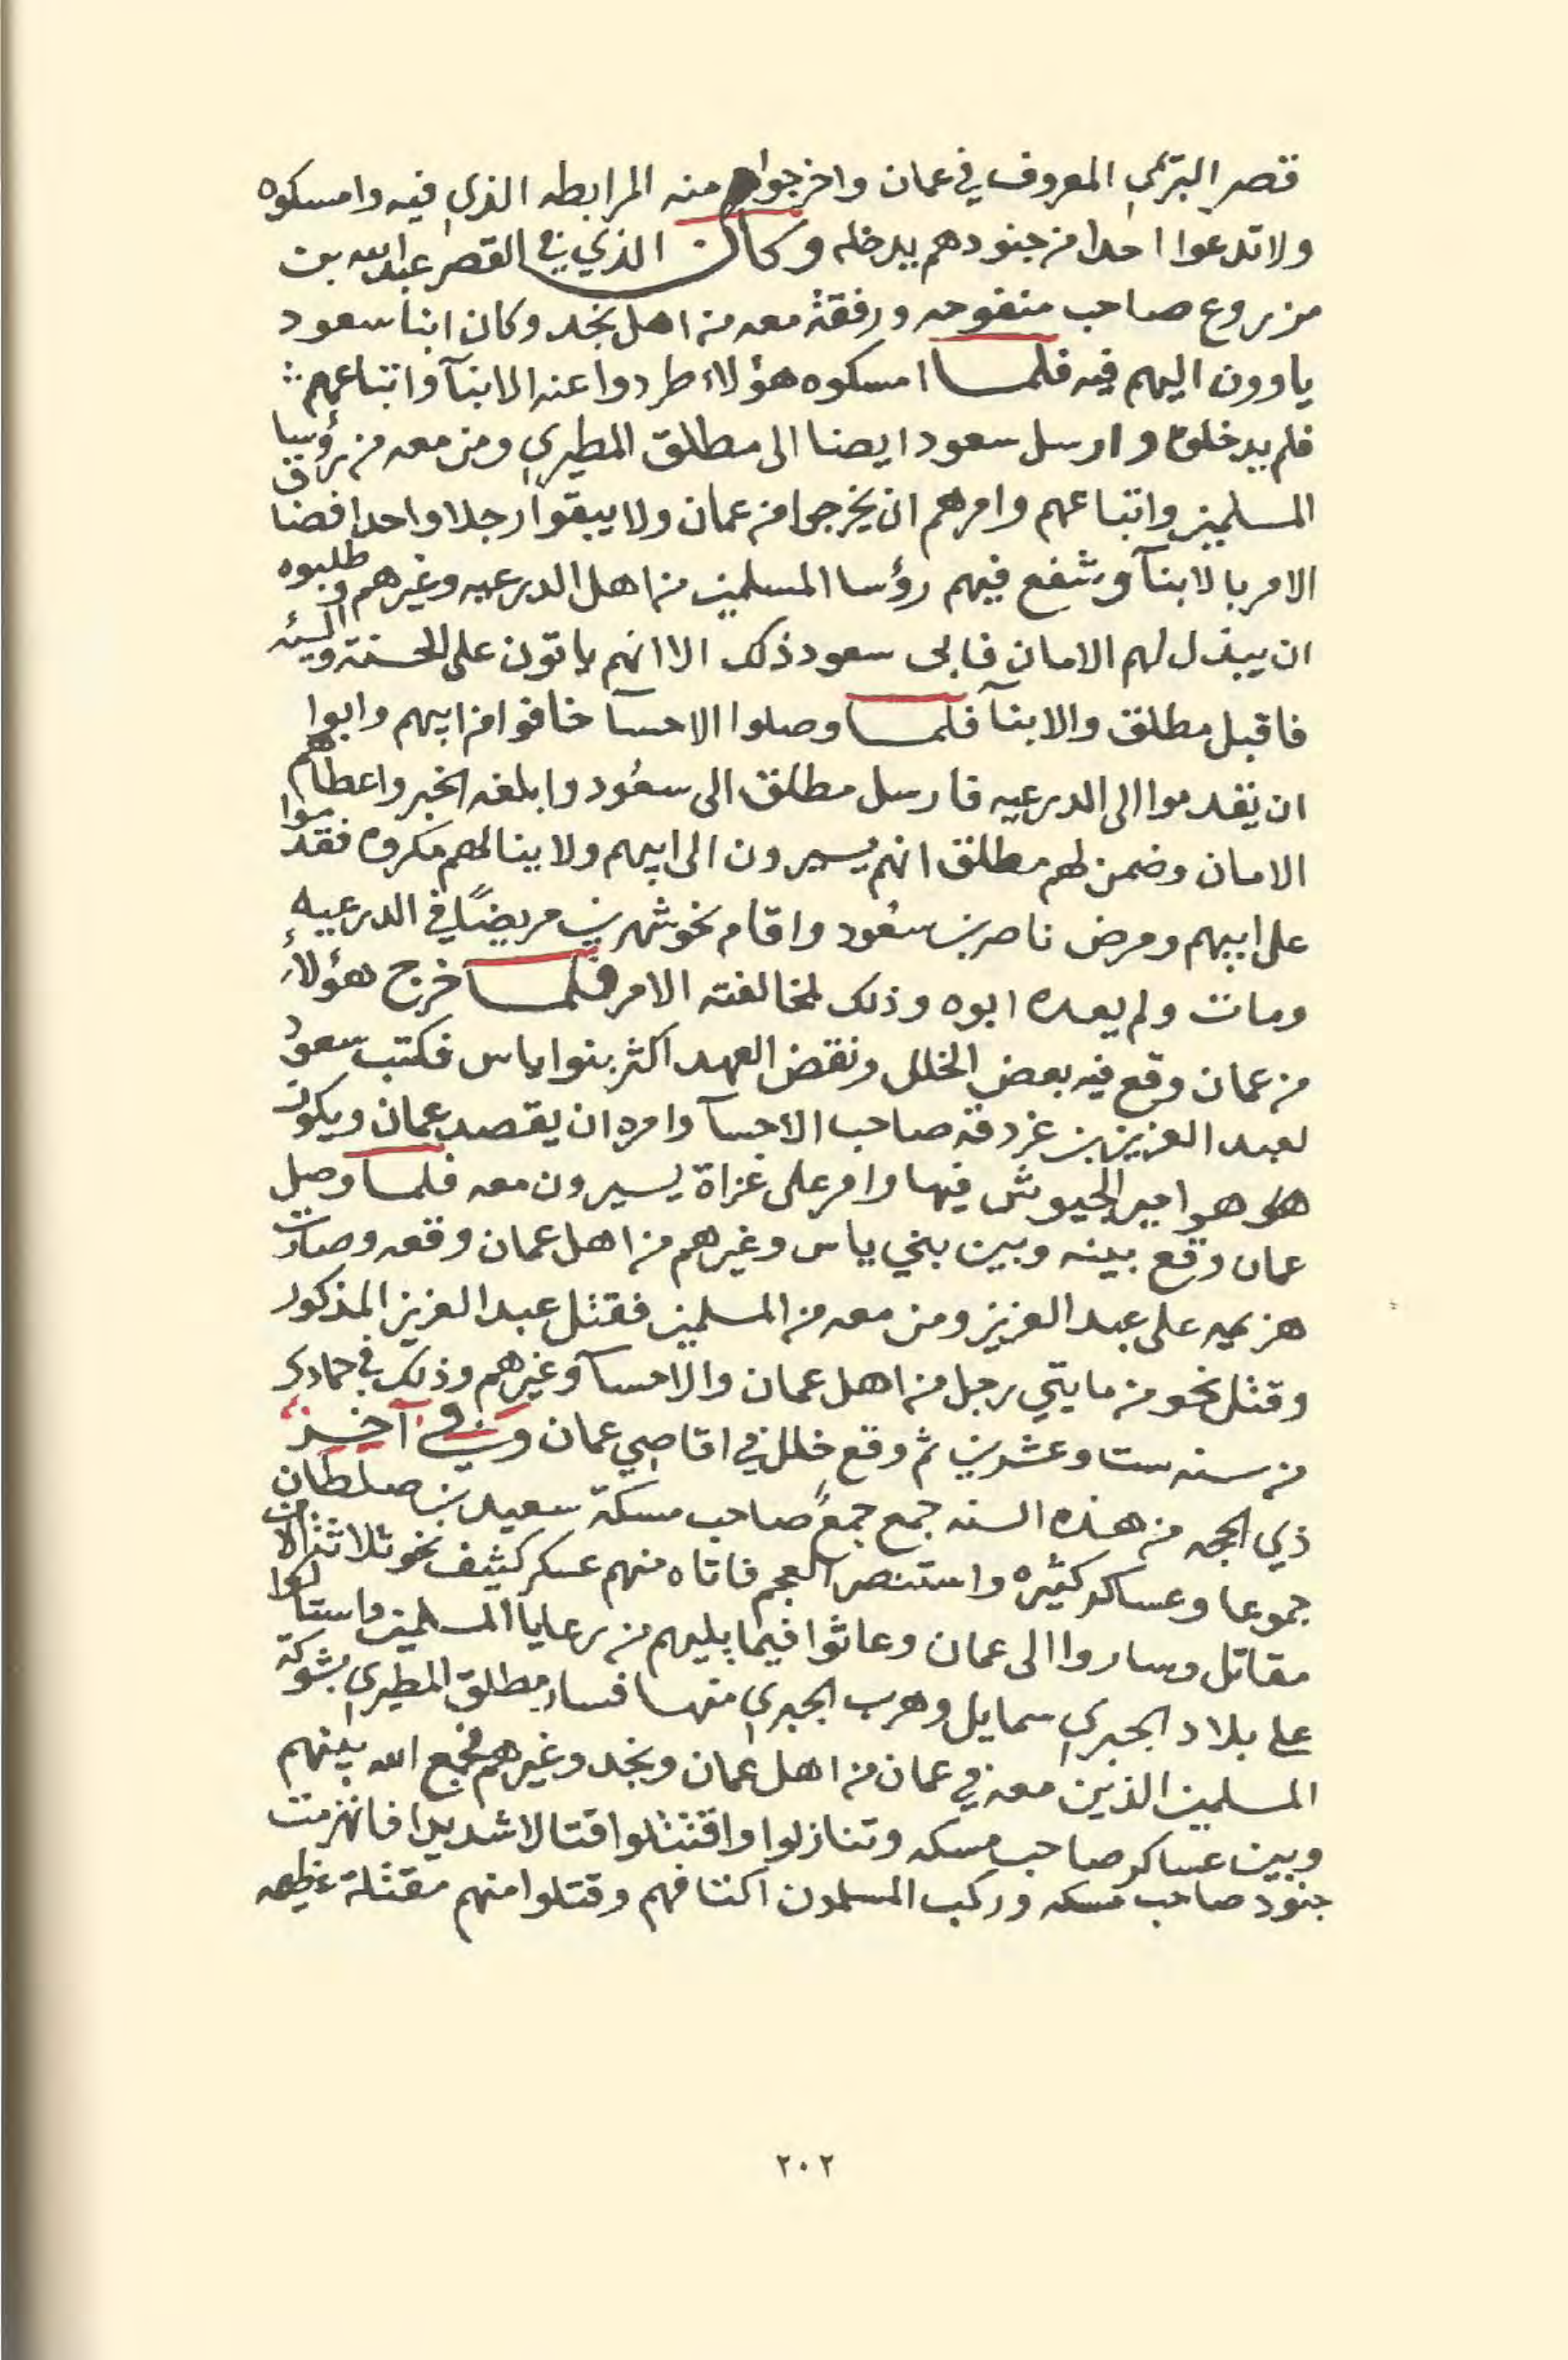 قصر البريمي المعروف في عمان واخرجوا منه المرابطه الذي فيه وامسكوه
ولا تدعوا احدا من جنودهم يدخله وكان الذي في القصر عبدالله بن
مزروع صاحب منفوحه ورفقة معه من اهل نجد وكان ابنا سعود
ياوون اليهم فيه فلما امسكوه هؤلاء طردوا عنه الابنآ واتباعهم
فلم يدخلوه وارسل سعود ايضا الى مطلق المطيري ومن معه من رؤسا
المسلمين واتباعهم وامرهم ان يخرجوا من عمان ولا يبقوا رجلا واحدا فضاق
الامر بالابنآ وشفع فيهم رؤسا المسلمين من اهل الدرعيه وغيرهم وطلبوه
ان يبذل لهم الامان فابى سعود ذلك الا انهم ياتون على الحسنة والسيئه
فاقبل مطلق والابنآ فلما وصلوا الاحسآ خافوا من ابيهم وابوا
ان يقدموا الى الدرعيه فارسل مطلق الى سعود وابلغه الخبر واعطاهم
الامان وضمن لهم مطلق انهم يسيرون الى ابيهم ولا ينالهم مكروه فقدموا
على ابيهم ومرض ناصر بن سعود واقام نحو شهرين مريضًا في الدرعيه
ومات ولم يعده ابوه وذلك لمخالفته الامر فلما خرج هؤلاء
من عمان وقع فيه بعض الخلل ونقض العهد اكثر بنوا ياس فكتب سعود
لعبد العزيز بن غردقه صاحب الاحسآ وامره ان يقصد عمان ويكون
هو امير الجيوش فيها وامر على غزاة يسيرون معه فلما وصل
عمان وقع بينه وبين بني ياس وغيرهم من اهل عمان وقعه وصارت
هزيمه على عبد العزيز ومن معه من المسلمين فقتل عبد العزيز المذكور
وقتل نحو من مايتي رجل من اهل عمان والاحسآ وغيرهم وذلك في جمادى
من سنه ست وعشرين ثم وقع خلل في اقاصي عمان وفي آخر
ذي الحجه من هذه السنه جمع صاحب مسكة سعيد بن صلطان
جموعا وعساكر كثيره واستنصر العجم فاتاه منهم عسكر كثيف نحو ثلاثة الاف
مقاتل وساروا الى عمان وعاثوا فيما يليهم من رعايا المسلمين واستالوا
على بلاد الجبري سمايل وهرب الجبري منها فسار مطلق المطيري بشوكة
المسلمين الذين معه في عمان من اهل عمان ونجد وغيرهم فجمع الله بينهم
وبين عساكر صاحب مسكه وتنازلوا واقتتلوا قتالا شديدا فانهزمت
جنود صاحب مسكه وركب المسلمون اكتافهم وقتلوا منهم مقتلة عظيمه
٢٠٢